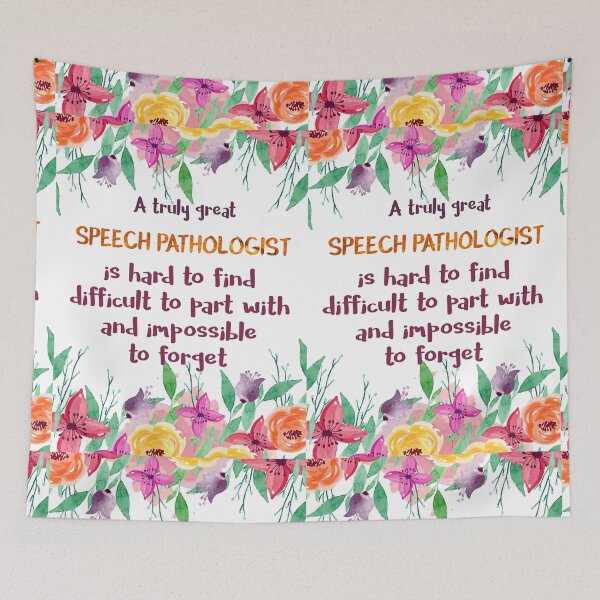 A truly great
SPEECH PATHOLOGIST
is hard to find
difficult to part with
and impossible
to forget
A truly great
SPEECH PATHOLOGIST
is hard to find
difficult to part with
and impossible
to forget